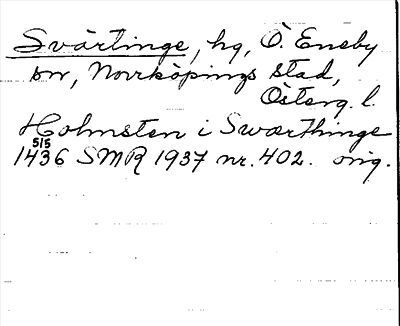 Svärtinge, hg, Ö. Eneby
sn, Norrköpings stad,
Österg. l.
Holmsten i Swærthinge
1436 5/5 SMR 1937 nr. 402. orig.